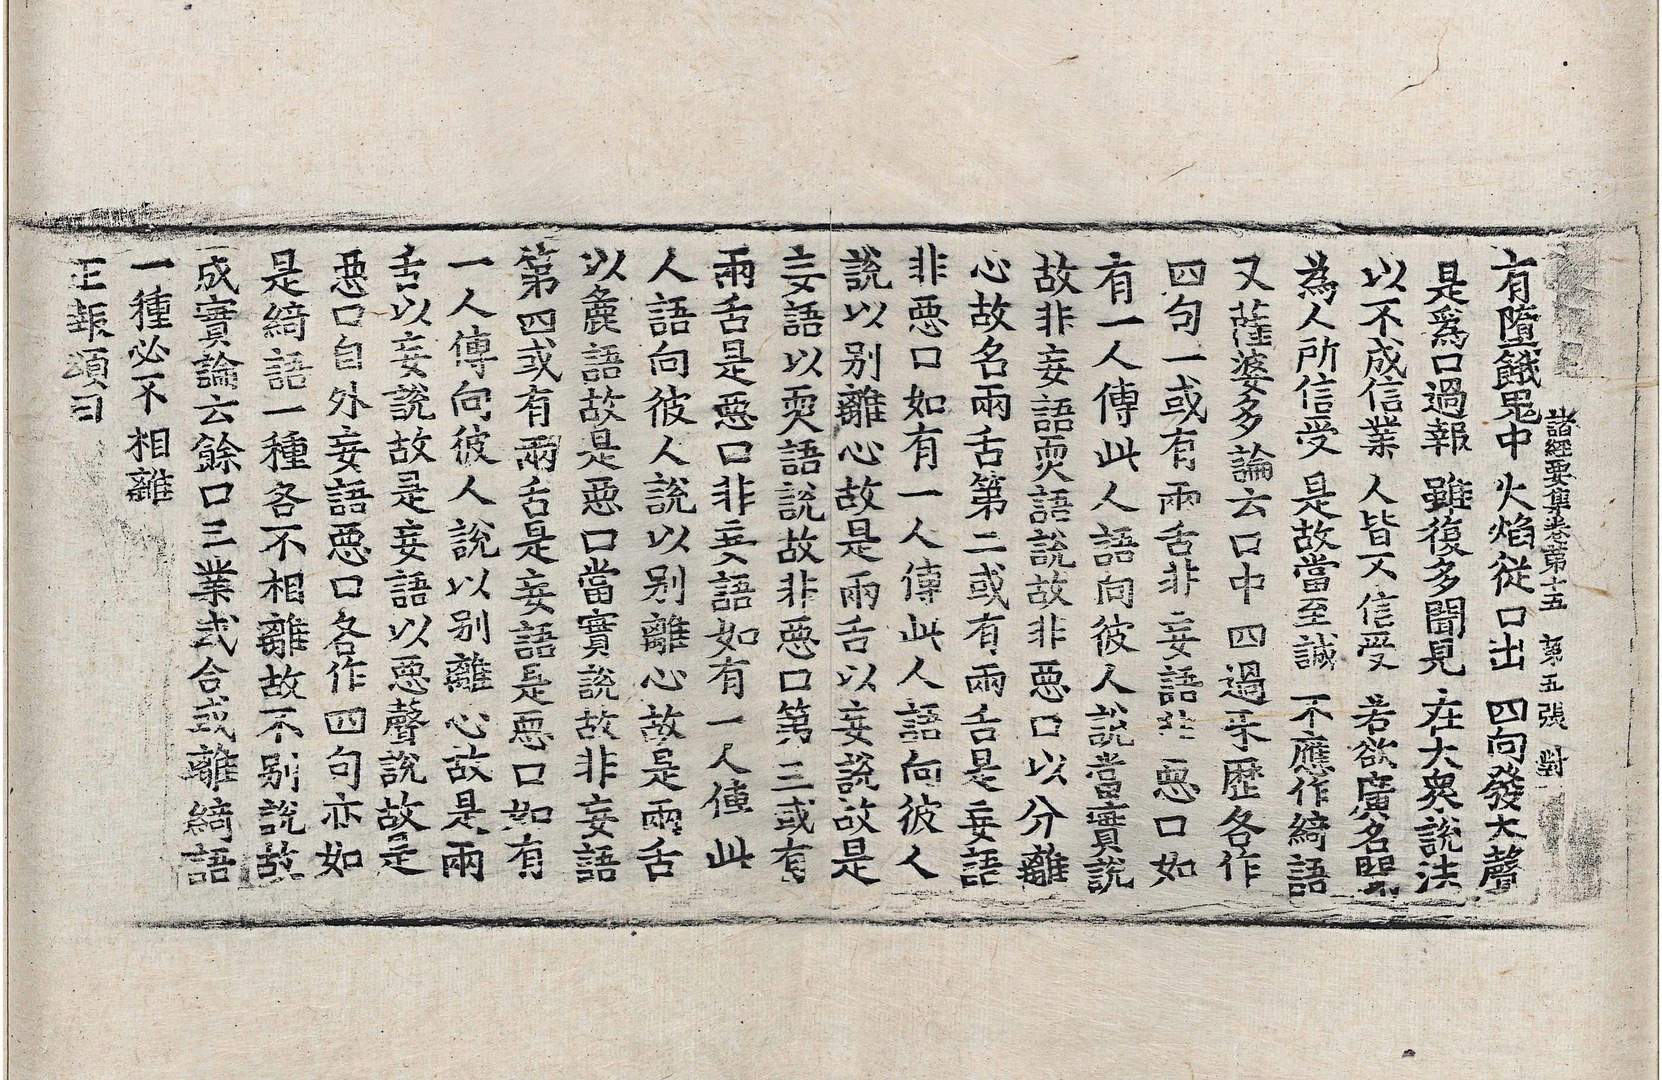 諸經要集卷第十五 第五張 對
有墮餓鬼中火焰從口出四向發大聲
是爲口過報雖復多聞見在大衆說法
以不成信業人皆不信受若欲廣名聞
為人所信受是故當至誠不應作綺語
又薩婆多論云口中四過米歷各作
四句一或有兩舌非妄語非惡口如
有一人傳此人語向彼人說當實說
故非妄語耎語說故非惡口以分離
心故名兩舌第二或有兩舌是妄語
非惡口如有一人傳此人語向彼人
說以别離心故是兩舌以妄說故是
妄語以耎語說故非惡口第三或有
兩舌是惡口非妄語如有一人傳此
人語向彼人說以别離心故是兩舌
以麁語故是惡口當實說故非妄語
第四或有兩舌是妄語是惡口如有
一人傳向彼人說以别離心故是兩
舌以妄說故是妄語以惡聲說故是
惡口自外妄語惡口各作四句亦如
是綺語一種各不相離故不别說故
成實論云餘口三業或合或離綺語
一種必不相離
正報頌曰